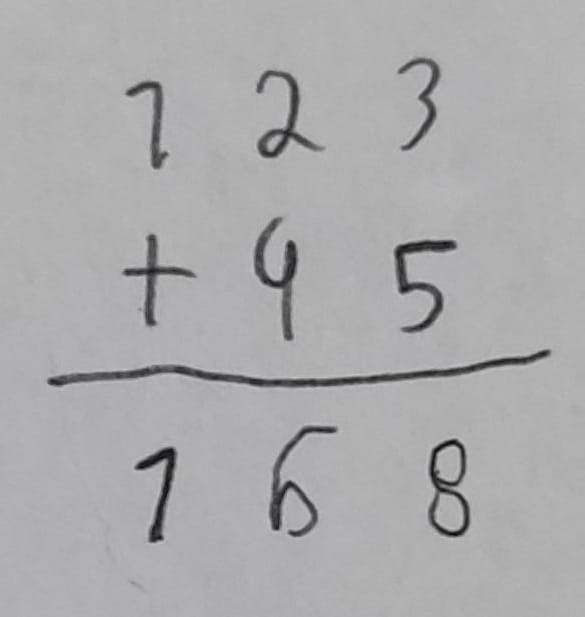 1 2 3
+ 4 5
1 6 8